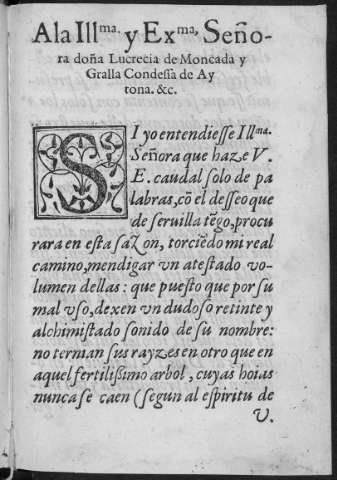 A la Ill.ma. y Ex.ma, Seño-
ra doña Lucrecia de Moncada y
Gralla Condessa de Ay
tona. &c.
SI yo entendiesse Ill.ma.
Señora que haze V.
E. caudal solo de pa
labras, cõ el desseo que
de seruilla tẽgo, procu
rara en esta sazon, torciẽdo mi real
camino, mendigar vn atestado vo-
lumen dellas: que puesto que por su
mal vso, dexen vn dudoso retinte y
alchimistado sonido de su nombre:
no ternian sus rayzes en otro que en
aquel fertilissimo arbol, cuyas hojas
nunca se caen (segun al espiritu de
V.